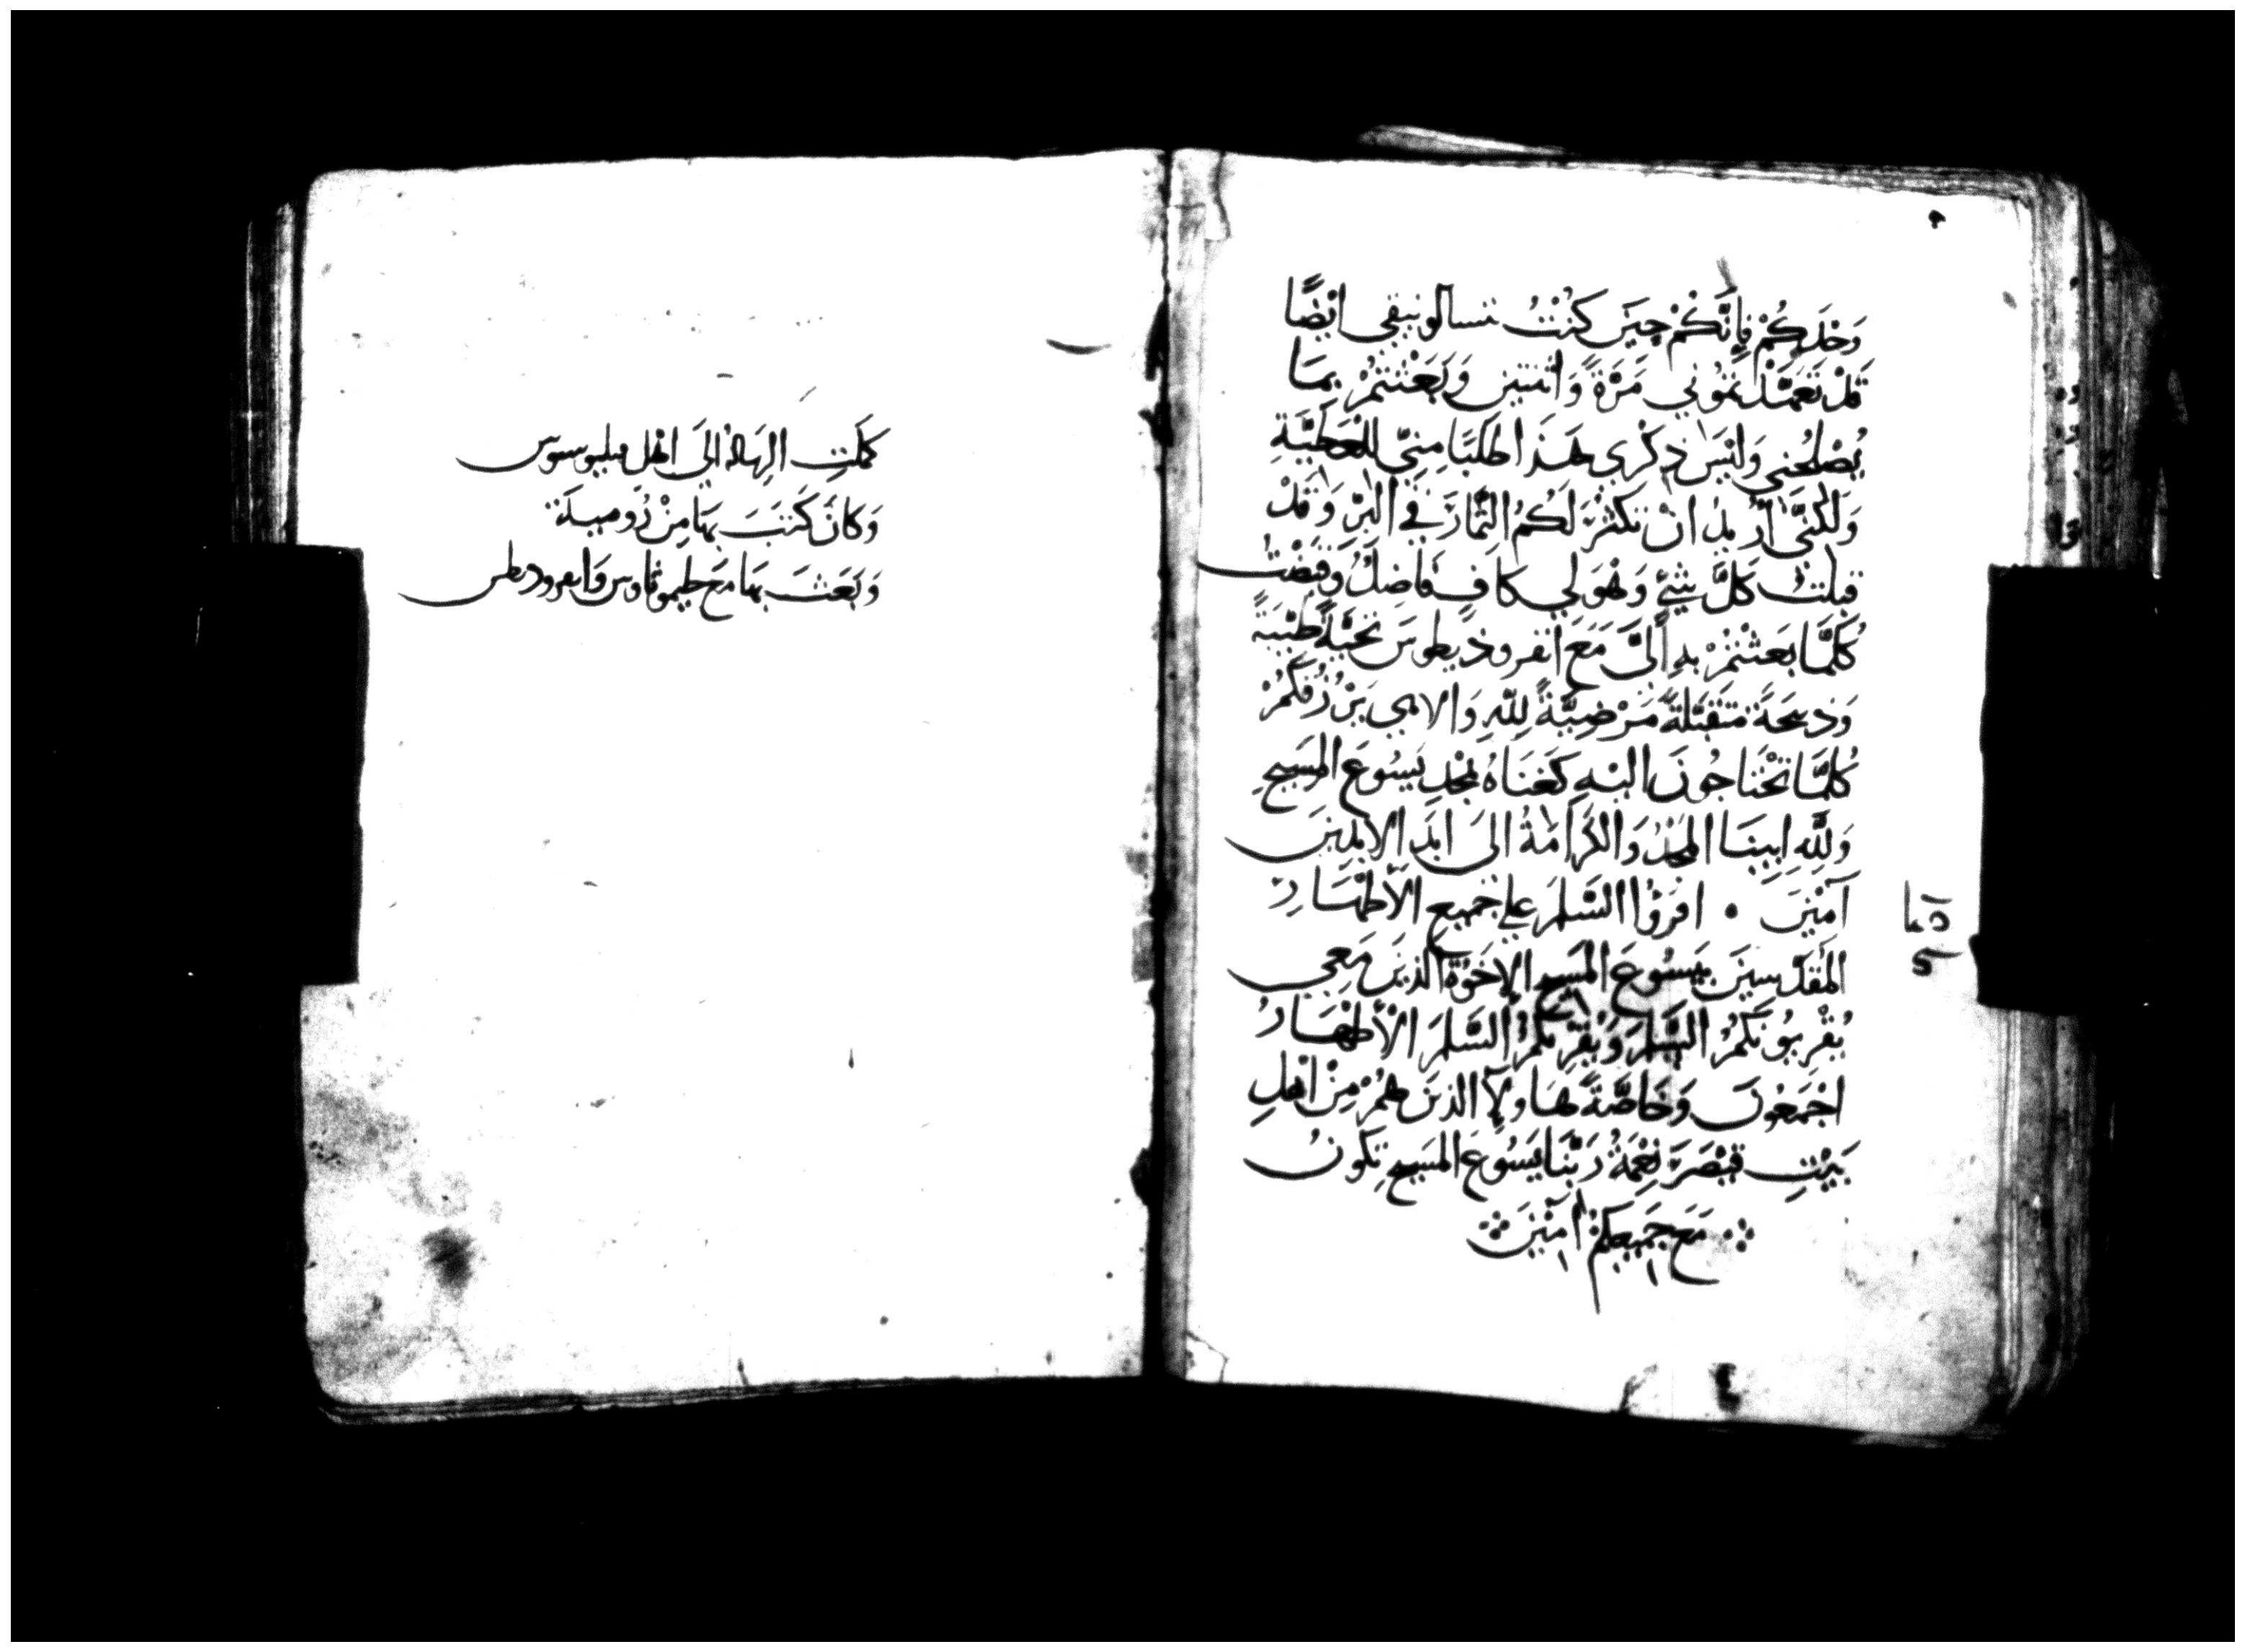 وَحْدَكُمْ فَإِنَّكُمْ حِينَ كُنْتُ بتسالونيقى ايْضًا
قَدْ تَعَمَّدْتمُونِي مَرَّةً وَاثنتين وَبَعَثْتُمْ بِمَا
يُصْلِحُنِي وَلَيْسَ ذِكْرِي هَذَا طَلَبًا مِنّي لِلْعَطِيَّةِ
وَلَكِنَّى ارُيدُ انْ تَكثرَ لَكُمُ الثمَارَ فِي البِرّ وَقَدْ
قبلْتُ كُلَّ شَيْءٍ وَهُوَ لي كَافٍ فَاضلٌ وَقبَضْتُ
كُلَّمَا بَعَثْتُمْ بِهِ الَىَّ مَعَ افروذيطوسَ تحيَّةً طيّبَةً
وَذبيحَةً متَقَبَّلَةً مَرْضِيَّةً لِلَّهِ وَالاهي يَرْزُقكُمْ
كُلَّمَا تَحْتَاجُونَ اليْهِ كَغنَاهُ بمَجْدِ يَسُوعَ المَسِيحِ
وَلِلَّهِ ابينَا المَجْدُ وَالكَرَامَةُ الىَ ابَدِ الابدِينَ
آمِيْنَ • اقرَؤُا السَّلمَ علي جَميعِ الاطْهَارِ
المُقَدّسِينَ بيَسُوعَ المَسِيحِ الإخوَةُ الذينَ مَعِي
يُقْرِيُونَكُمُ السَّلمَ وَيُقْرِيكُمُ السَّلمَ الأطْهَارُ
اجْمَعُونَ وَخَاصَّةً هَاولَآ الذينَ هُمْ مِنْ اهْلِ
بَيْتِ قيْصَرَ نِعْمَةُ رَبِّنَا يَسُوعَ المَسِيحِ تَكونُ
مَعَ جَمِيعِكُمْ آمِيْنَ
كَمُلَتِ الرِسَالَةُ الىَ اهْلِ فيليبوسيوس
وَكَانَ كَتَبَ بِهَا مِنْ رُومِيةَ
وَبَعَثَ بِهَا مَعَ طيموثاوس وَافروديطس